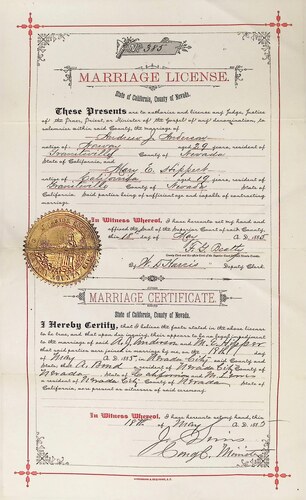 No 315
MARRIAGE LICENSE.
State of California, County of Nevada.
These Presents are to authorize and license any Judge, Justice
of the Peace, Priest, or Minister of the Gospel of any denomination, to
solemnize within said County, the marriage of
Andrew J. Anderson
native of Norway aged 29 years, resident of
Graniteville County of Nevada
State of California, and
Mary E.
native of California aged 18 years, resident of
Graniteville County of Nevada State of
California. Said parties being of sufficient age and capable of contracting
marriage.
In Witness Whereof, I have hereunto set my hand and
affixed the Seal of the Superior Court of said County,
this 18th day of May A.D. 1885
F. G. Beatty
County Clerk and ex-officio Clerk of the Superior Court in and for Nevada County.
By W. D. Harris Deputy Clerk.
MARRIAGE CERTIFICATE.
State of California, County of Nevada.
I Hereby Certify, that I believe the facts stated in the above license
to be true, and that upon due inquiry, there appears to be no legal impediment
to the marriage of said A. J. Anderson and M. E.
that said parties were joined in marriage by me on the 18th day
of May A.D. 1885, in Nevada City, County of Nevada,
State; that A. Bond a resident of Nevada City County of
Nevada State of California and
a resident of Nevada City County of Nevada, State of
California, were present as witnesses of said ceremony.
In Witness Whereof, I have hereunto set my hand, this
18th May A.D. 1885
J. Sims
Cong'l. Minister